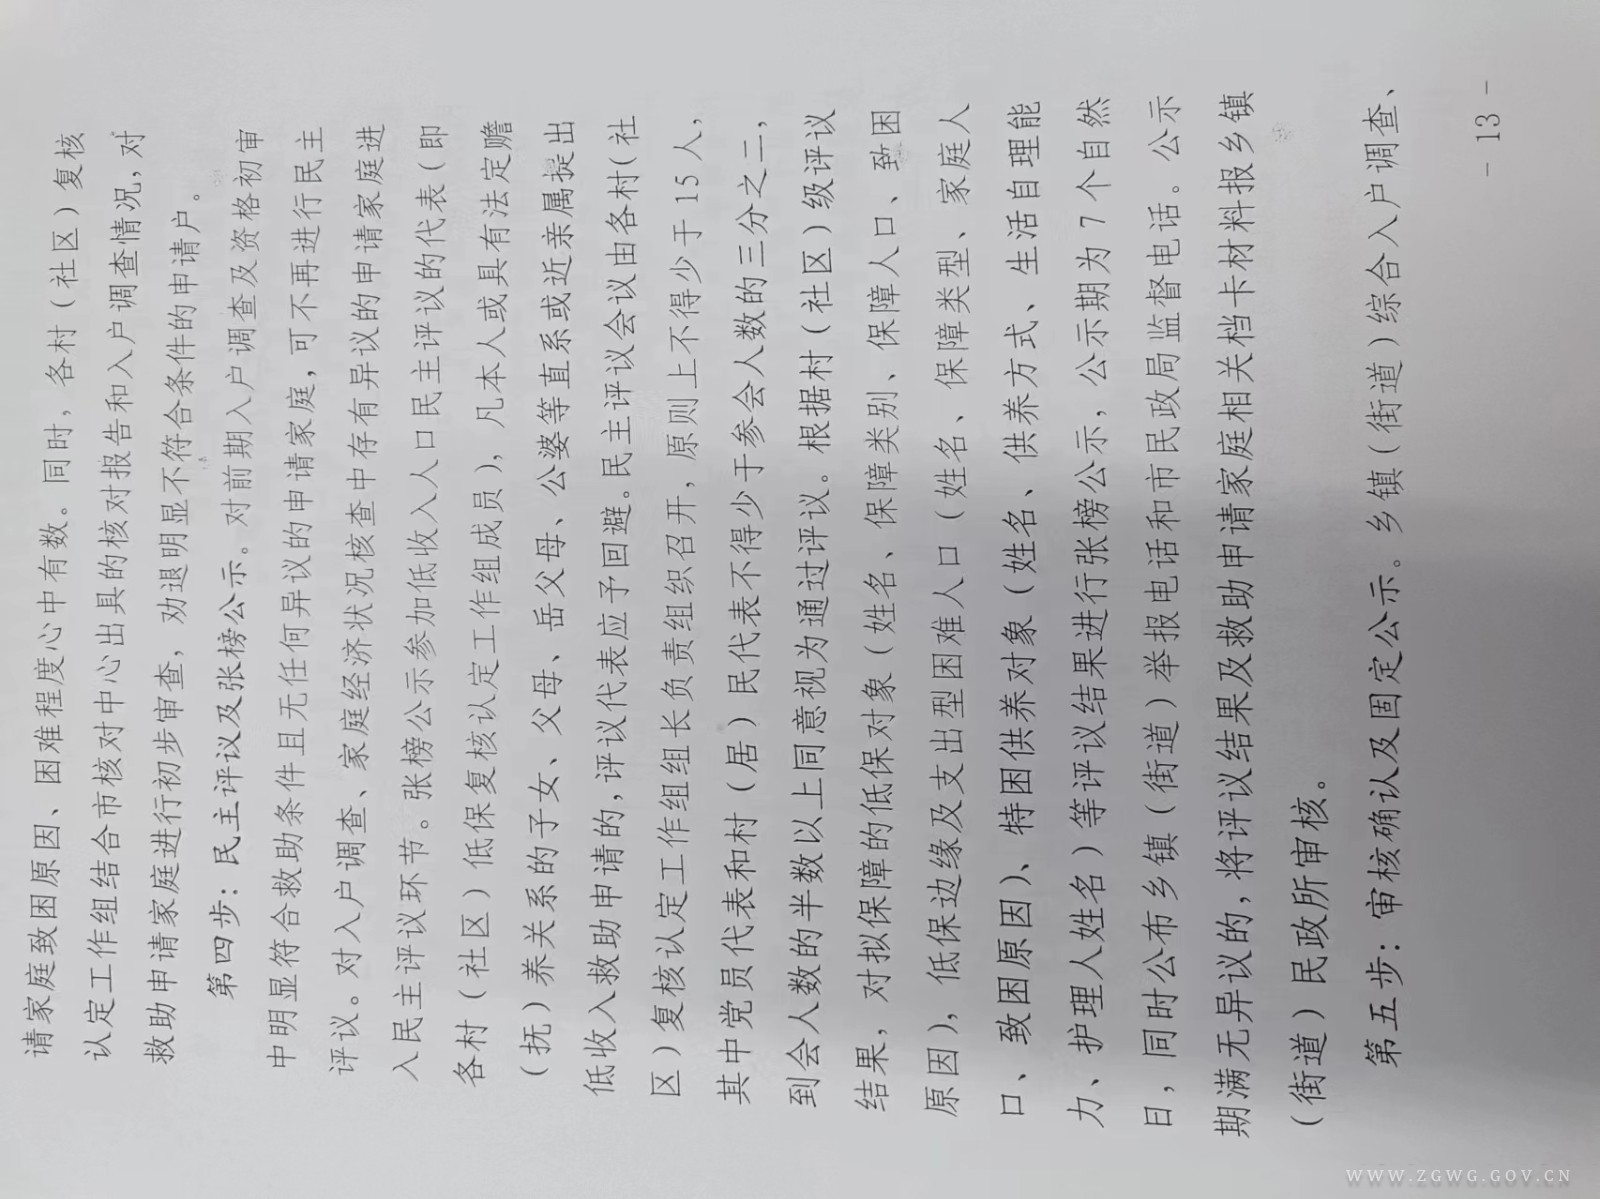 请家庭致困原因、困难程度心中有数。同时，各村（社区）复核
认定工作组结合市核对中心出具的核对报告和入户调查情况，对
救助申请家庭进行初步审查，劝退明显不符合条件的申请户。
第四步：民主评议及张榜公示。对前期入户调查及资格初审
中明显符合救助条件且无任何异议的申请家庭，可不再进行民主
评议。对入户调查、家庭经济状况核查中存有异议的申请家庭进
入民主评议环节。张榜公示参加低收入人口民主评议的代表（即
各村（社区）低保复核认定工作组成员），凡本人或具有法定赡
（抚）养关系的子女、父母、岳父母、公婆等直系或近亲属提出
低收入救助申请的，评议代表应予回避。民主评议会议由各村（社
区）复核认定工作组组长负责组织召开，原则上不得少于15人，
其中党员代表和村（居）民代表不得少于参会人数的三分之二，
到会人数的半数以上同意视为通过评议。根据村（社区）级评议
结果，对拟保障的低保对象（姓名、保障类别、保障人口、致困
原因），低保边缘及支出型困难人口（姓名、保障类型、家庭人
口、致困原因）、特困供养对象（姓名、供养方式、生活自理能
力、护理人姓名）等评议结果进行张榜公示，公示期为7个自然
日，同时公布乡镇（街道）举报电话和市民政局监督电话。公示
期满无异议的，将评议结果及救助申请家庭相关档卡材料报乡镇
（街道）民政所审核。
第五步：审核确认及固定公示。乡镇（街道）综合入户调查、
- 13 -
WWW.ZGWG.GOV.CN